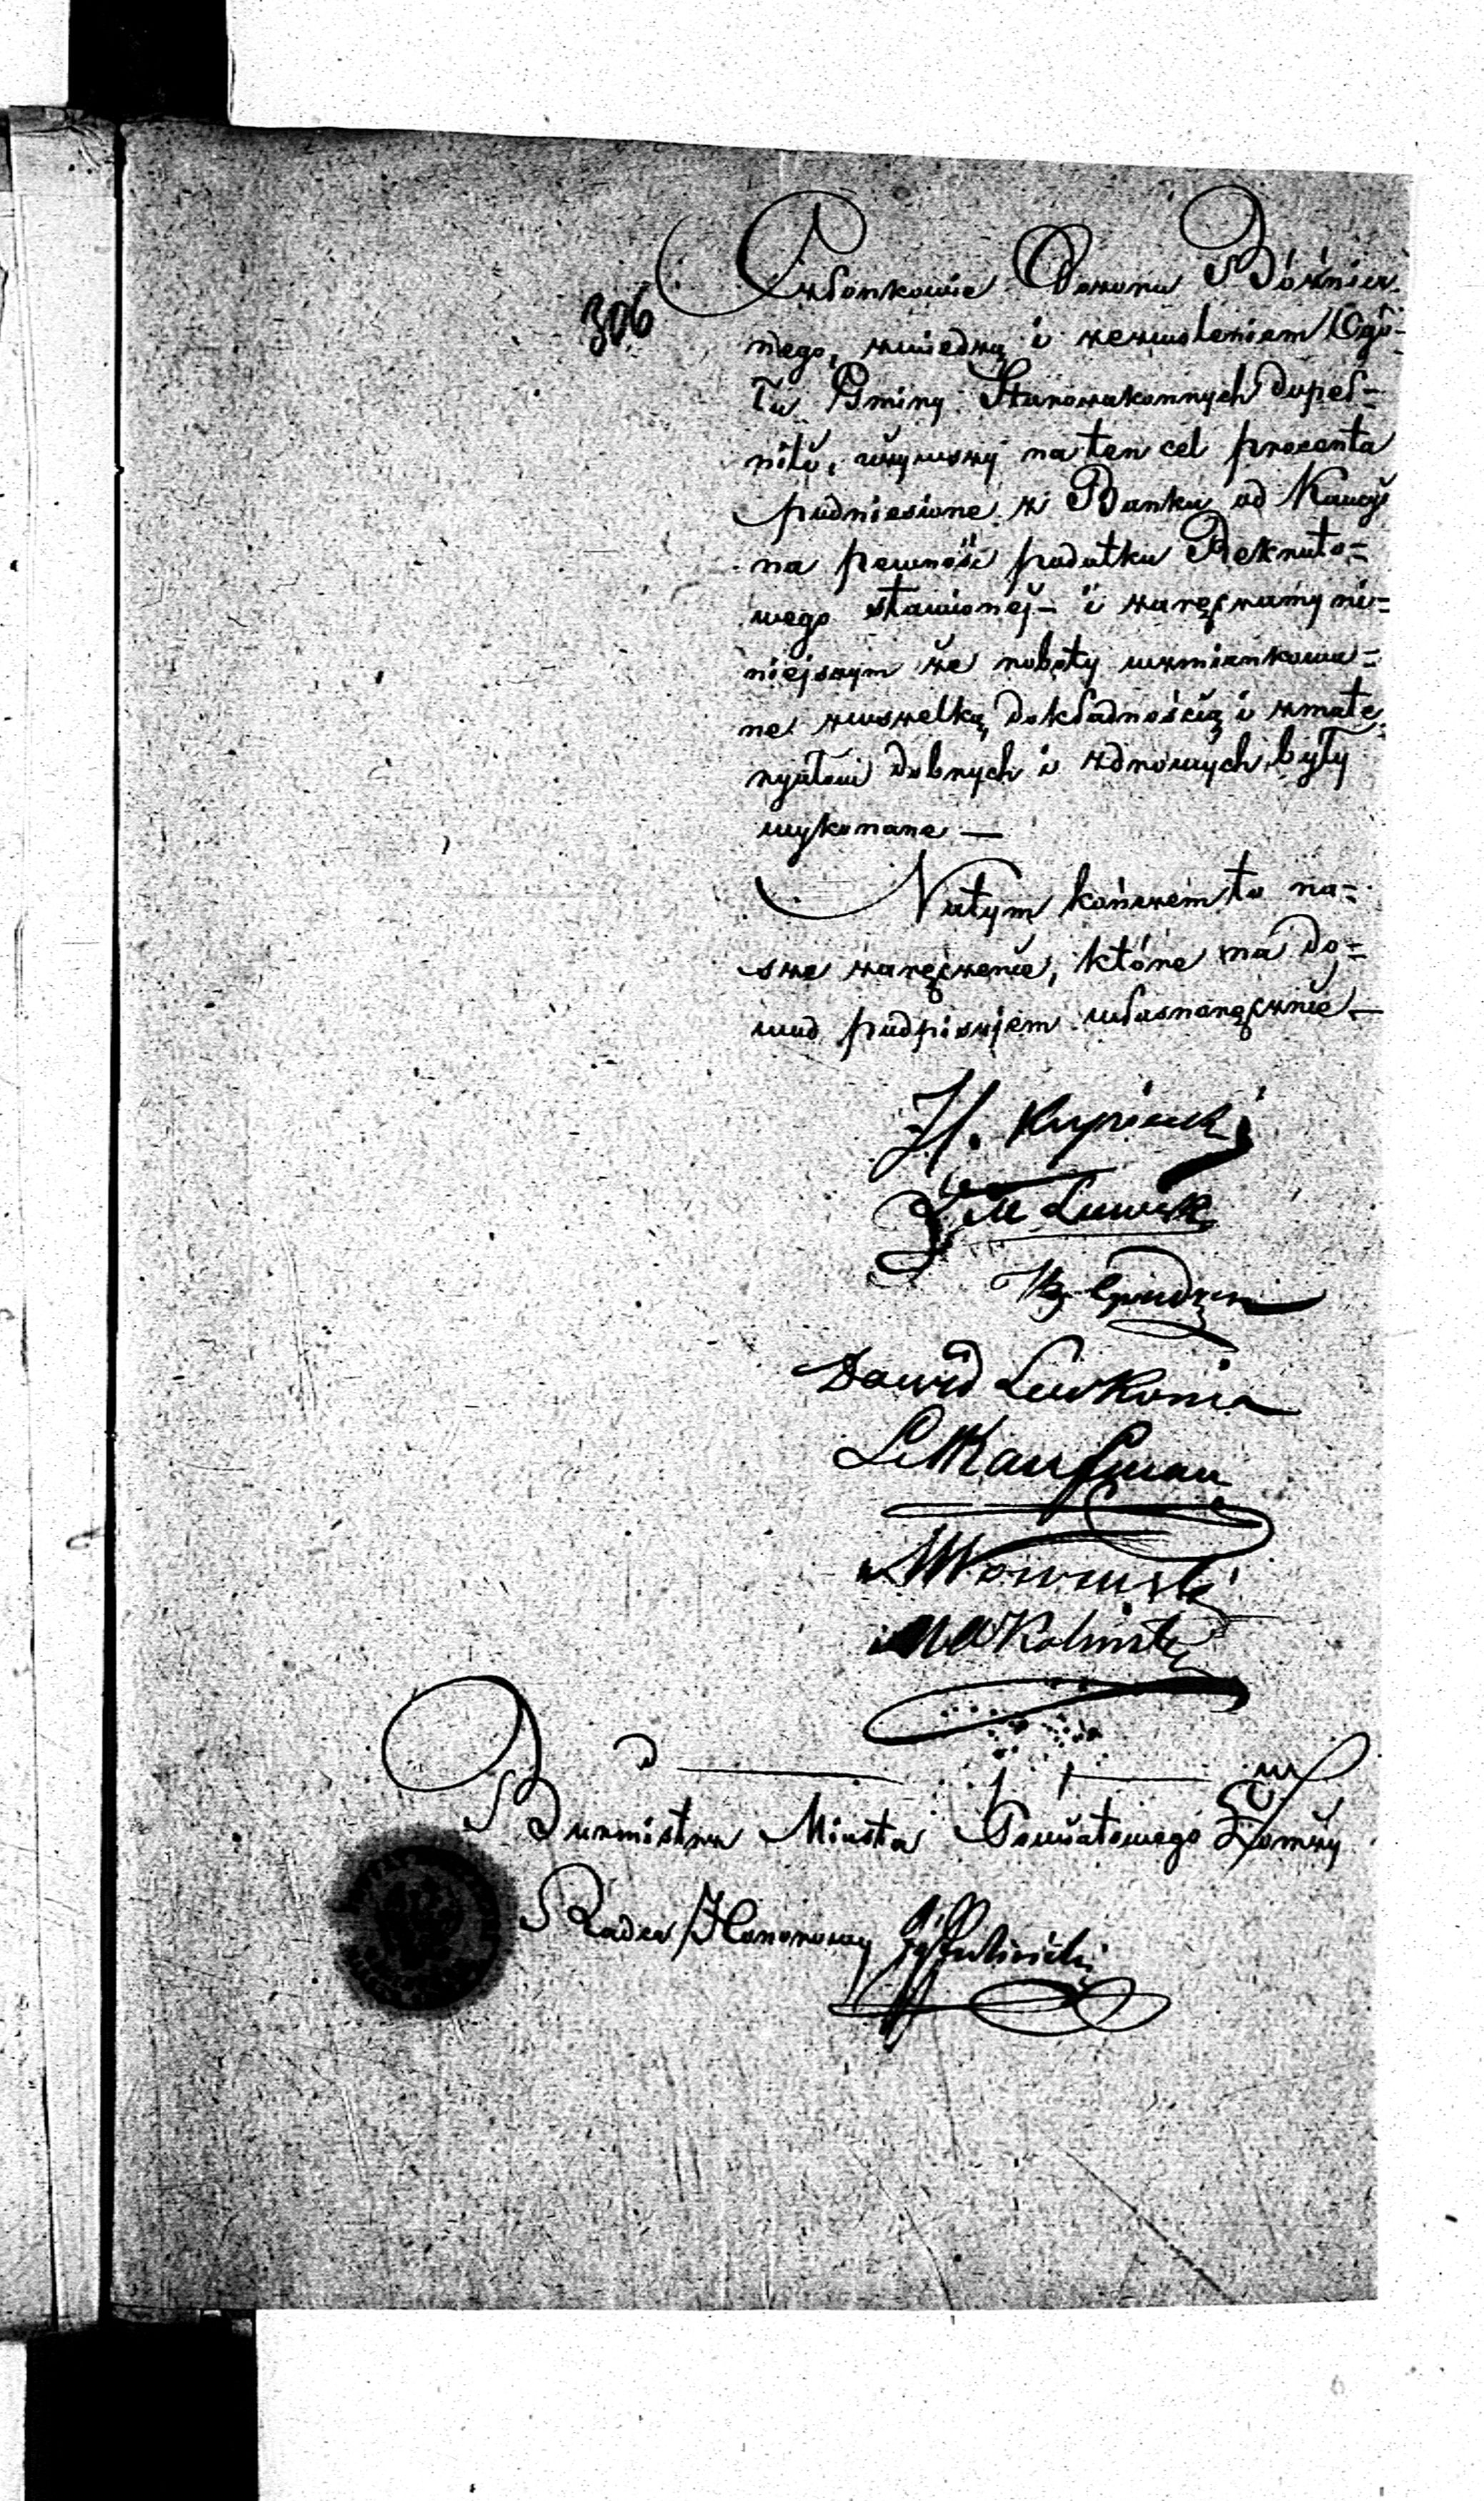 306
Członkowie Dozoru Bóżnicz
nego, zwiedzą i zezwoleniem Ogó-
łu Gminy Starozakonnych dopeł=
nili, używszy na ten cel procenta
podniesione z Banku od Kaucyi
na pewność podatku Rekruto=
wego stawionej – i zaręczamy ni=
niejszym że roboty wzmiankowa=
ne zwszelką dokładnością i zmate
ryałów dobrych i zdrowych były
wykonane —
Natym kończem to na=
sze zaręczenie, które na do=
wód podpisujem własnoręcznie —
H.
Dawid
Kaufman
Burmistrz Miasta Powiatowego Łomży
Radca Honorowy